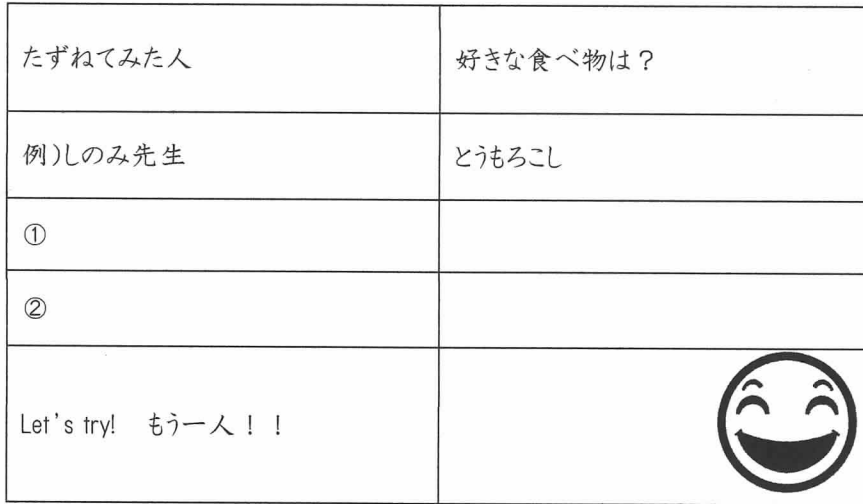 たずねてみた人
好きな食べ物は？
例)しのみ先生
とうもろこし
①
②
Let's try!　もう一人！！